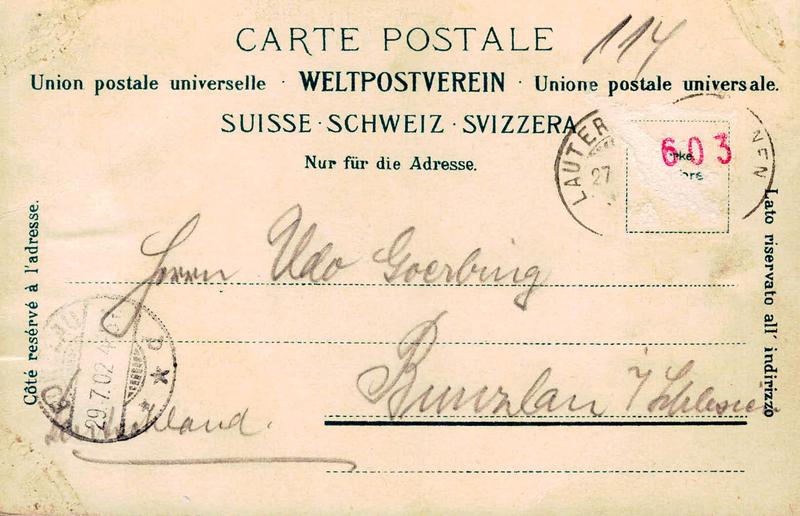 CARTE POSTALE
114
Union postale universelle · WELTPOSTVEREIN · Unione postale universale.
SUISSE · SCHWEIZ · SVIZZERA
Nur für die Adresse.
LAUTER NEN
27
603
Côté resérvé à l'adresse.
Lato riservato all' indirizzo
Herrn Udo Goerbing
29.7.02
d
Bunzlau i/Schlesien
Deutschland.